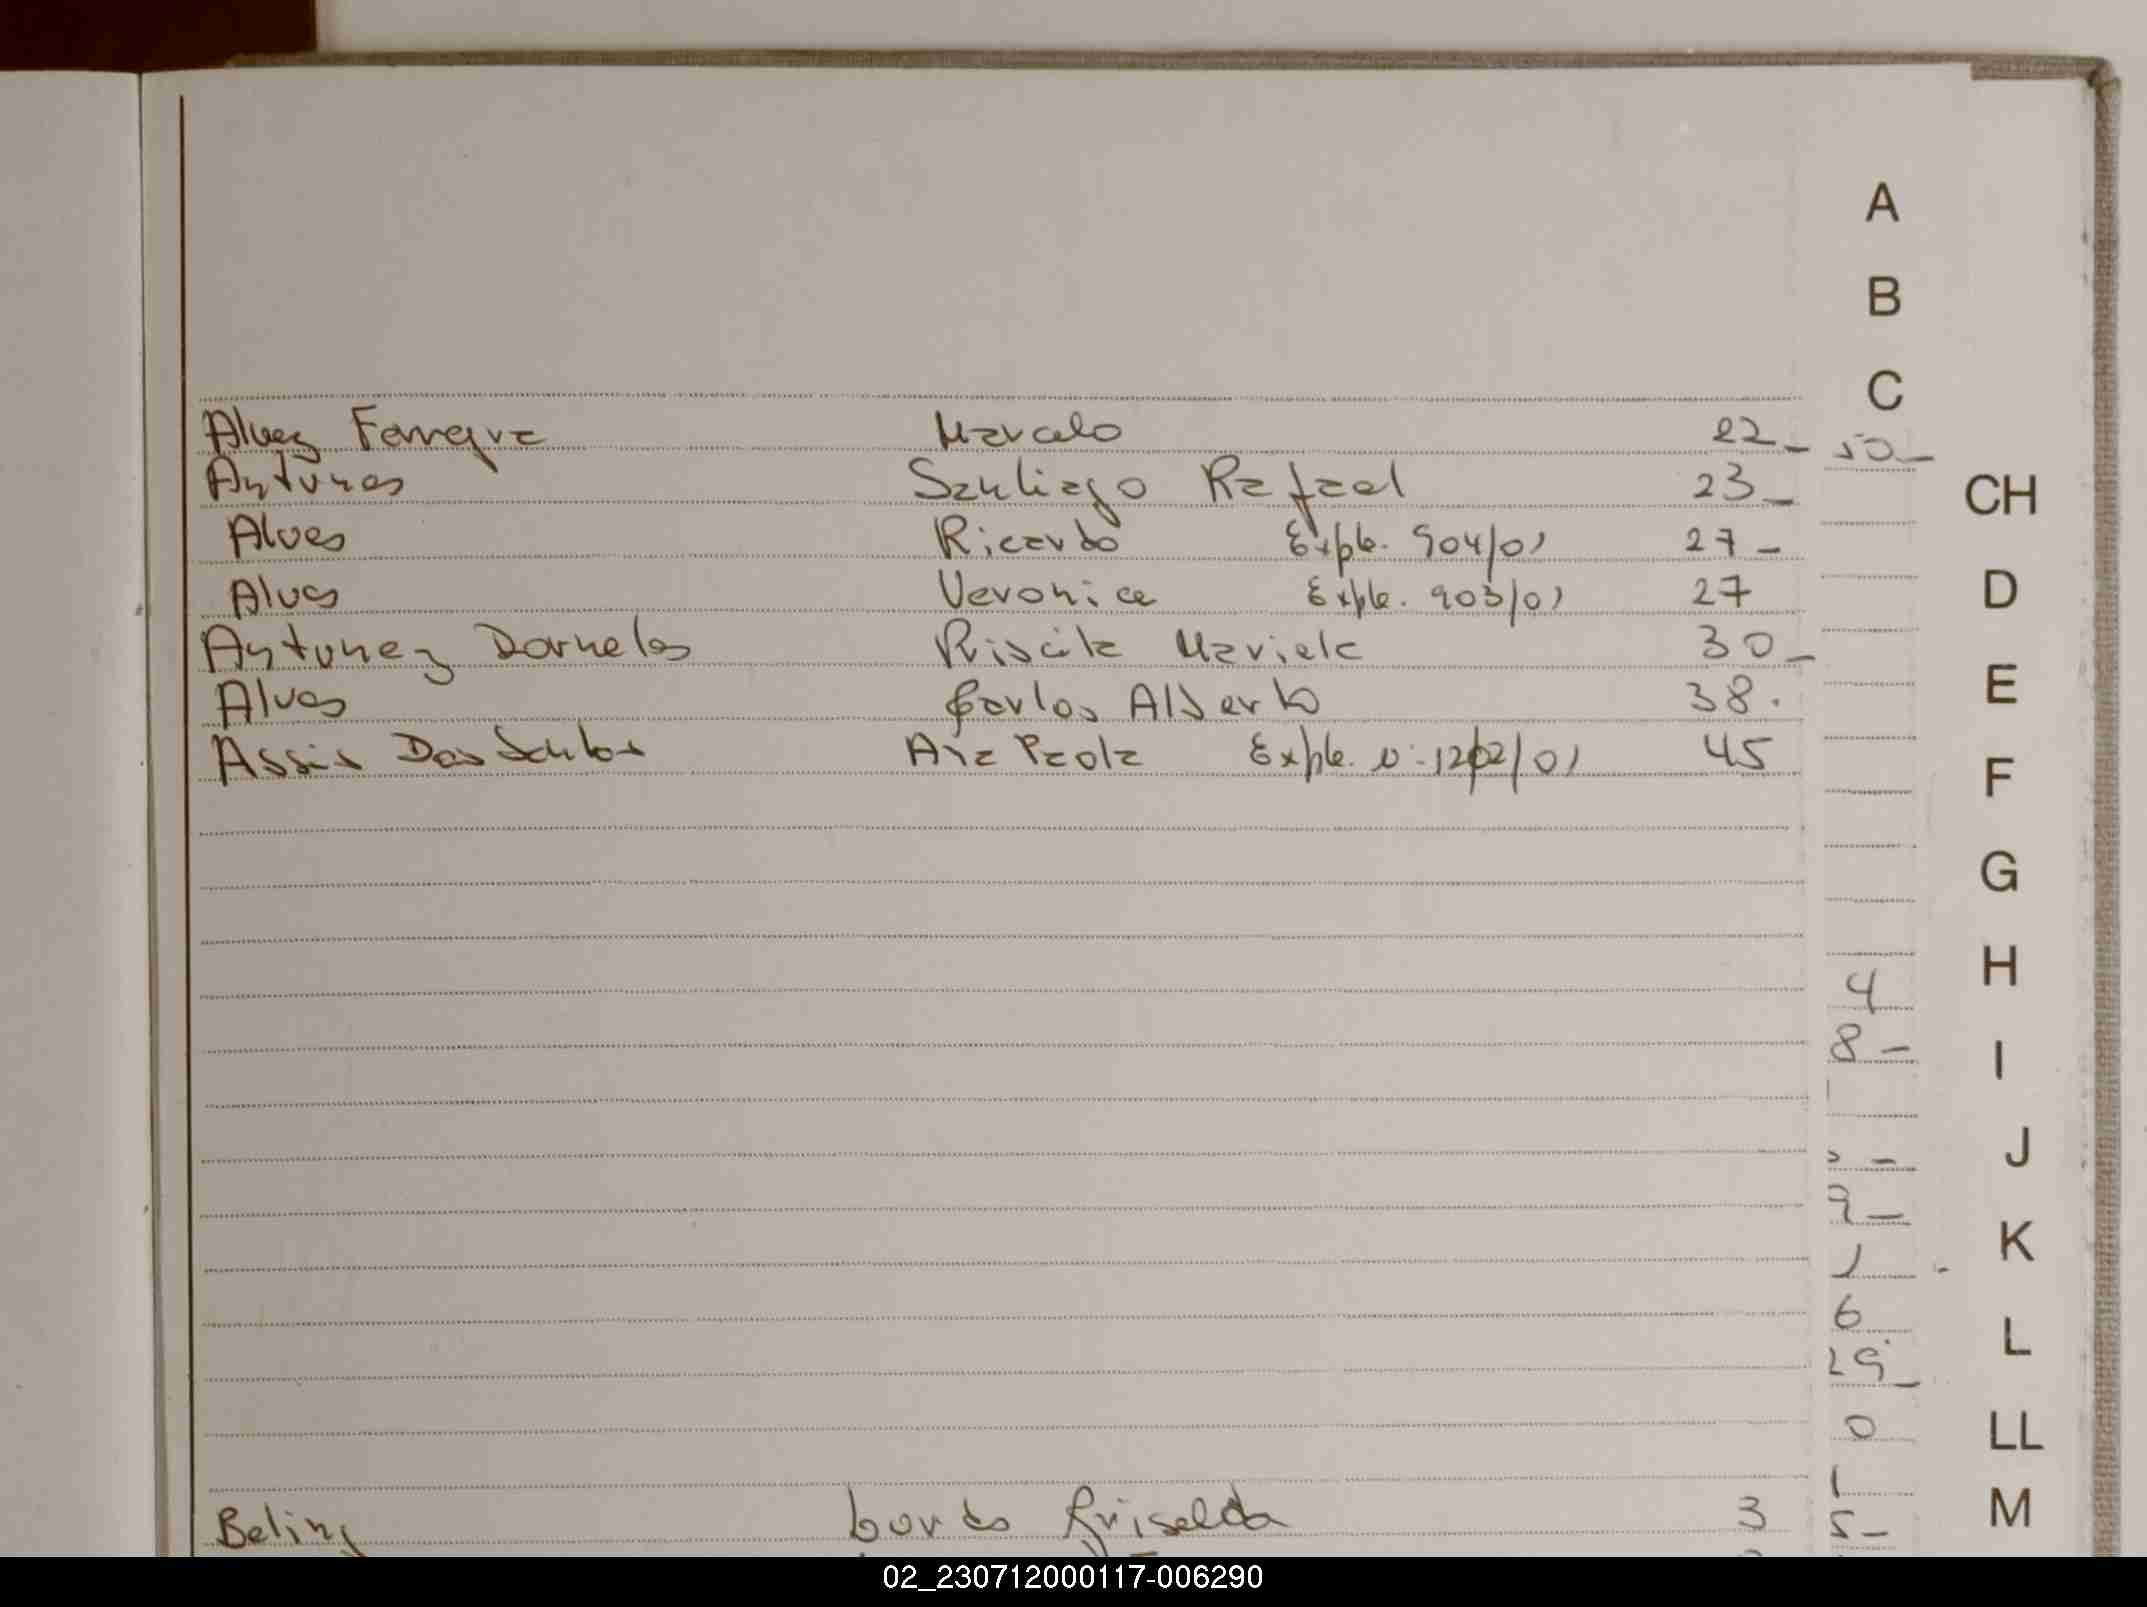 A
B
C
Alvez Ferreyra Marcelo 22_ 50_
Antunes Santiago Rafael 23_
CH
Alves Ricardo Expte. 904/01 27_
Alves Veronica Expte. 903/01 27
D
Antunez Dorneles Priscila Mariela 30_
E
Alves Carlos Alberto 38.
Assis Dos Santos Ana Paola Expte. N: 1202/01 45
F
G
H
4
8 _
I
J
9_
K
1
6
L
29_
0
LL
1
M
Beling Griselda 3 5_
02_230712000117-006290